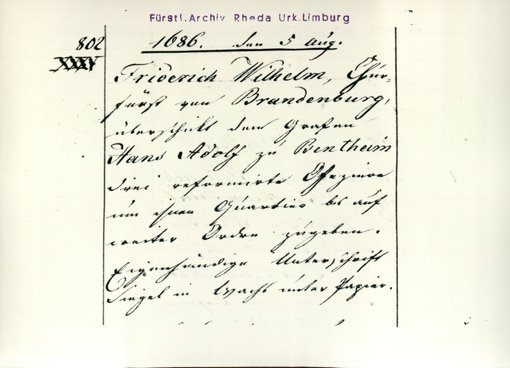 Fürstl. Archiv Rheda Urk. Limburg
802
XXXV
1686. den 5 Aug.
Friderich Wilhelm, Chur-
fürst von Brandenburg,
überschikt dem Grafen
Hans Adolf zu Bentheim
drei reformirte Offiziere
um ihnen Quartier bis auf
weiter Ordre zugeben.
Eigenhändige Unterschrift
Siegel in Wachs unter Papier.